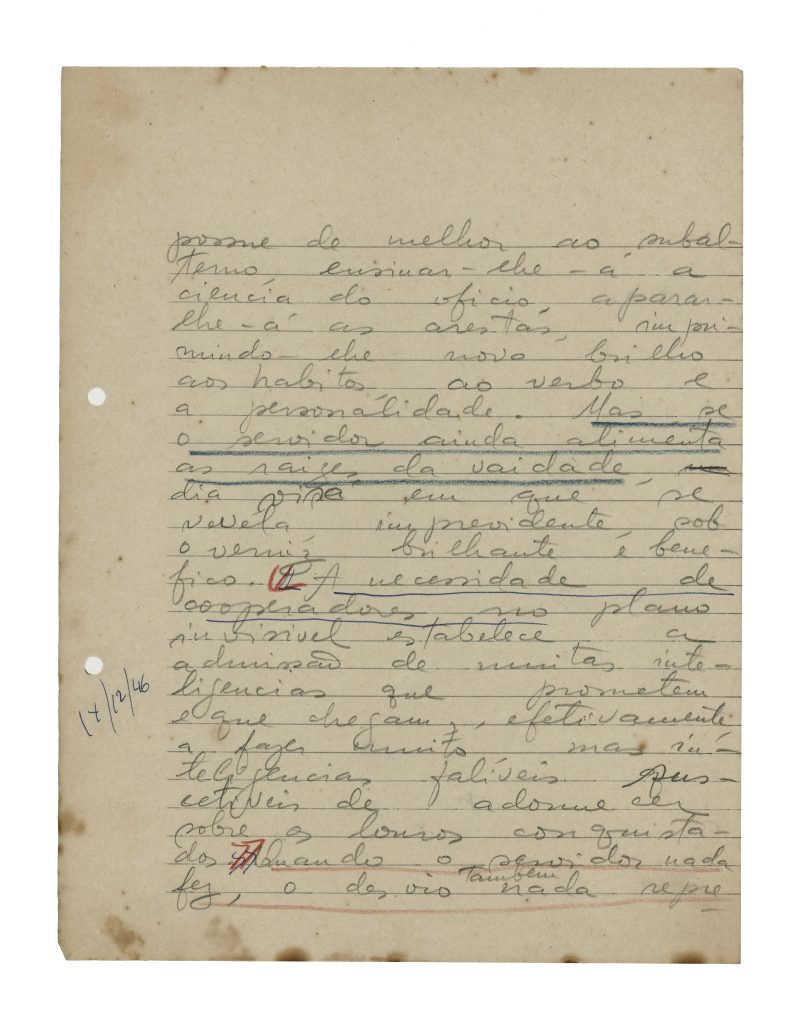 possue de melhor ao subal-
terno, ensinar-lhe-á a
ciência do oficio, aparar-
lhe-á as arestas, impri-
mindo-lhe novo brilho
aos habitos ao verbo e
a personalidade. Mas se
o servidor ainda alimenta
as raizes da vaidade,
dia virá em que se
revela imprevidente sob
o verniz brilhante e bene-
fico. A necessidade de
cooperadores no plano
invisivel estabelece a
admissão de muitas inte-
ligencias que prometem
e que chegam, efetivamente
a fazer muito mas in-
teligencias falíveis sus-
cetiveis de adormecer
sobre os louros conquista-
dos Quando o servidor nada
fez, o desvio também nada repre
14/12/46